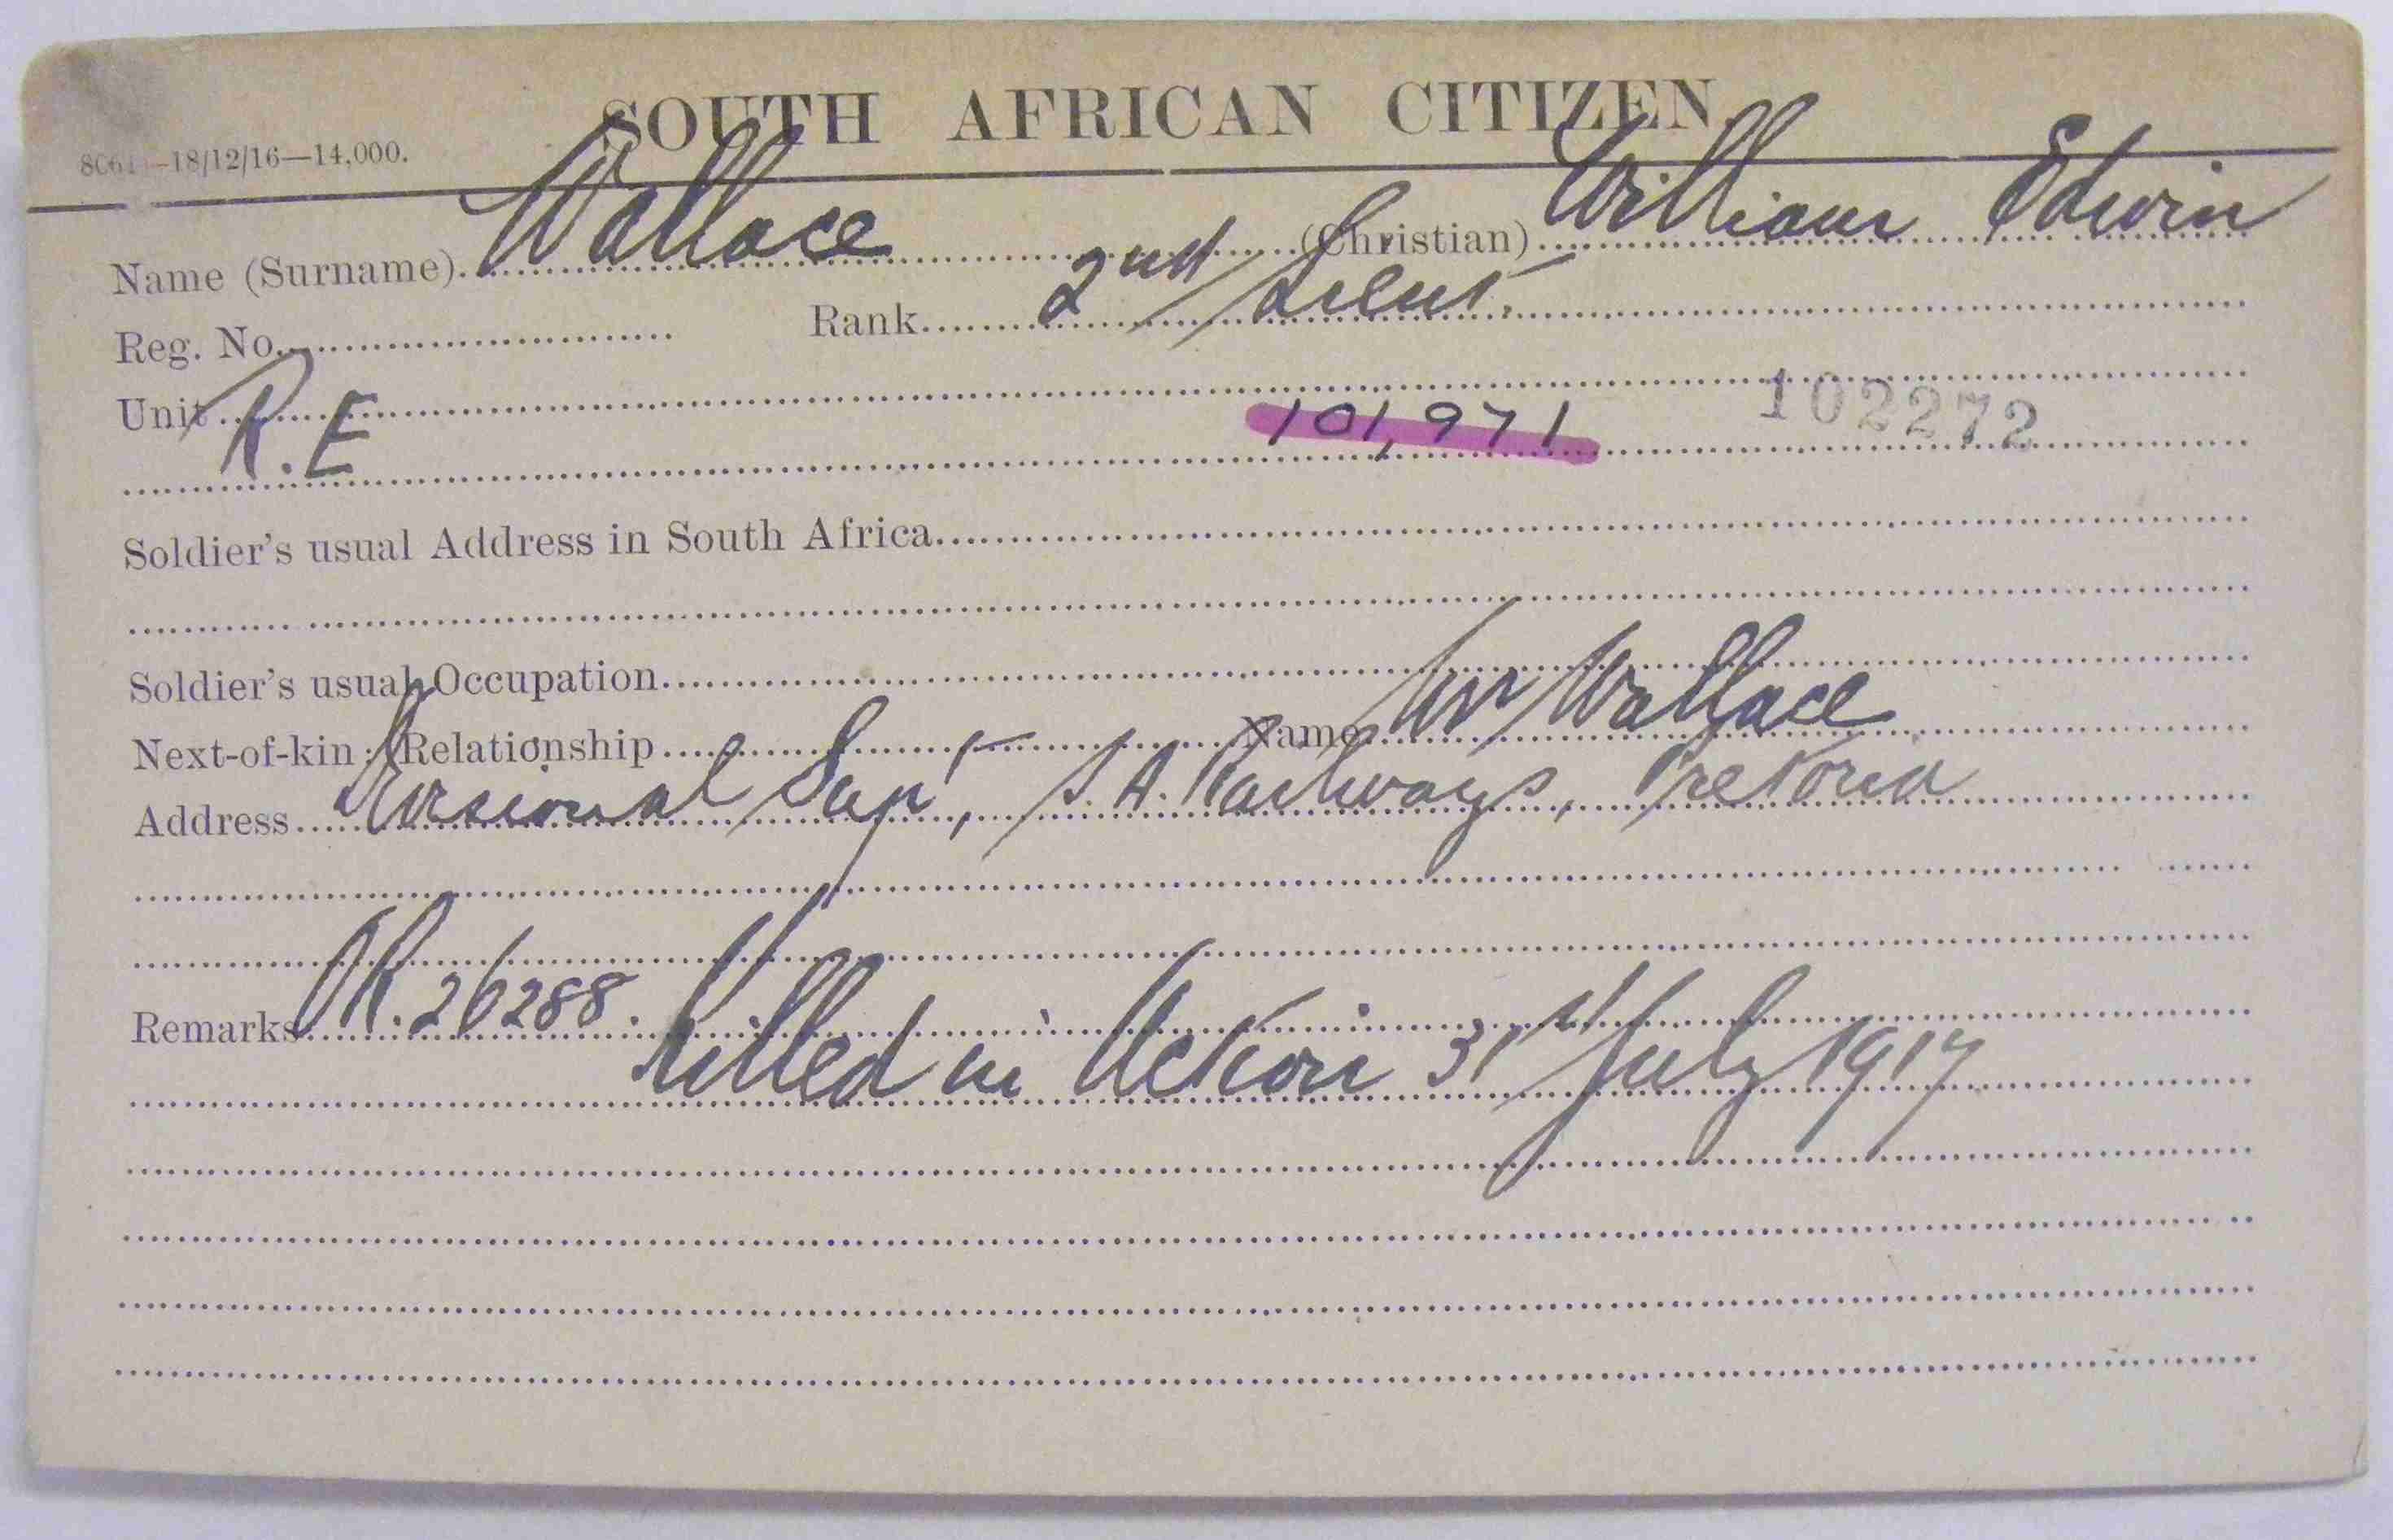 SOUTH AFRICAN CITIZEN.
—18/12/16—14,000.
Name (Surname) Wallace (Christian) William Edwin
Reg. No. Rank 2nd/Lieut.
Unit R.E
101,971 102272
Soldier's usual Address in South Africa
Soldier's usual Occupation
Next-of-kin: Relationship Name Mr Wallace
Address Divisional Supt, S.A. Railways, Pretoria
Remarks 26288. Killed in Action 31st July 1917